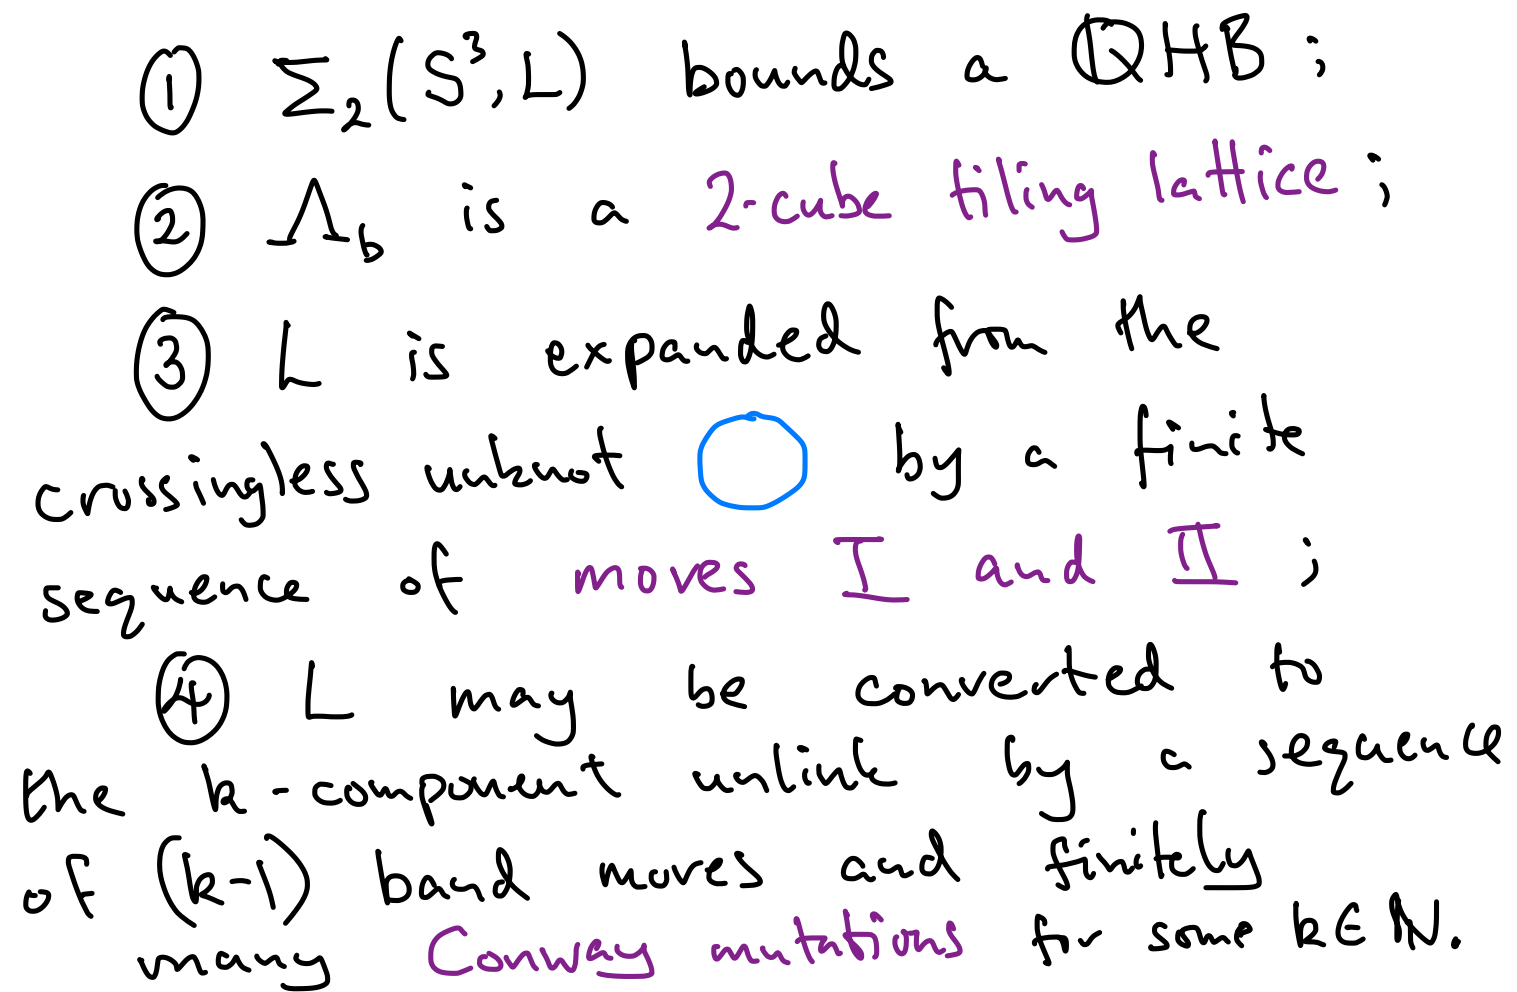 ① Σ₂(S³, L) bounds a QHB ;
② Λ_b is a 2-cube tiling lattice ;
③ L is expanded from the
crossingless unknot by a finite
sequence of moves I and II ;
④ L may be converted to
the k-component unlink by a sequence
of (k-1) band moves and finitely
many Conway mutations for some k ∈ ℕ.